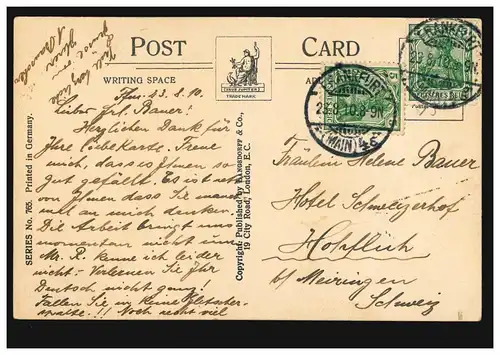 POST CARD
WRITING SPACE
TRADE MARK
SERIES No. 765. Printed in Germany.
Copyright: Published by & Co.,
19 City Road, London, E.C.
FRANKFURT
10.8-9N
(MAIN)
FRANKFURT
5
Ffm. 23.8.10.
Liebes Frl. Bauer!
Herzlichen Dank für
Ihre liebe Karte. Freue
mich, dass es Ihnen so
gut gefällt. Es ist nett
von Ihnen dass Sie man-
mal an mich denken.
Die Arbeit bringt uns
momentan nicht um.
Mr. P. kenne ich leider
nicht. Verlernen Sie Ihr
Deutsch nicht ganz!
Fallen Sie in keine Gletscher-
spalte!!! Noch recht viel
Fräulein Helene Bauer
Hotel Schweizerhof
Hohfluh
b/ Meiringen
Schweiz